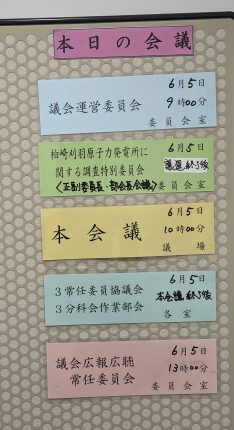 本日の会議
6月5日
議会運営委員会 9時00分
委員会室
柏崎刈羽原子力発電所に 6月5日
関する調査特別委員会 議運終了後
(正副委員長・部会長会議) 委員会室
6月5日
本会議 10時00分
議場
6月5日
3常任委員協議会 本会議終了後
3分科会作業部会 各室
6月5日
議会広報広聴 13時00分
常任委員会 委員会室